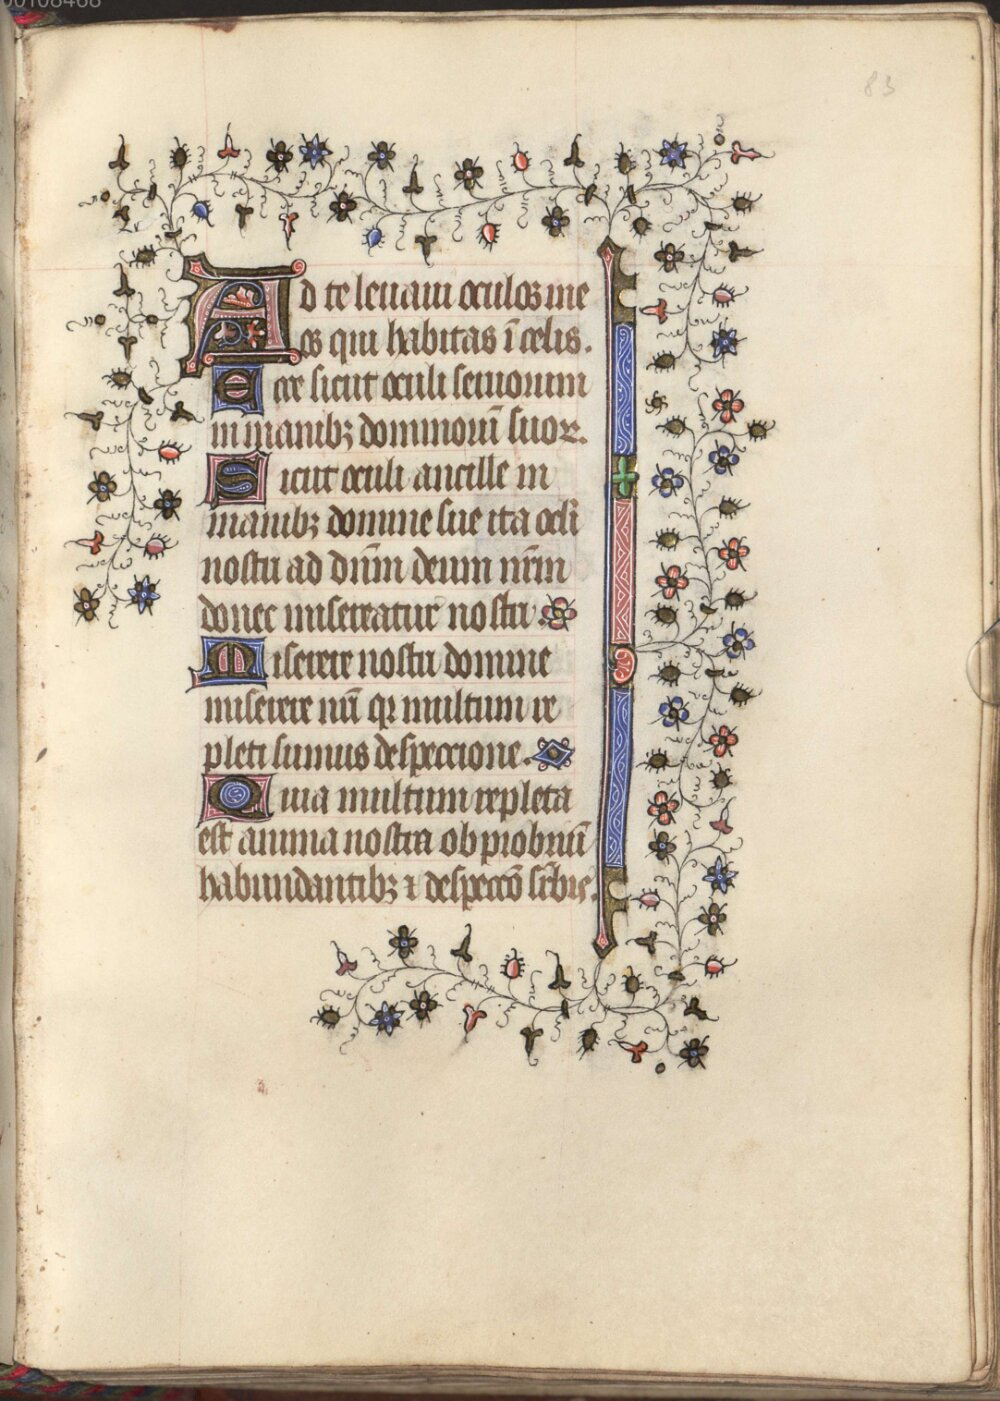 00108468
83
Ad te leuaui oculos me
os qui habitas ī celis.
Ecce sicut oculi seruorum
in manibꝫ dominoruꝫ̄ suoꝝ.
Sicut oculi ancille in
manibꝫ domine sue ita ocĺi
nostri ad dn̄m deum nr̄m
donec misereatur nostri.
Miserere nostri domine
miserere nr̄i qꝛ multum re
pleti sumus despeccione.
Quia multum repleta
est anima nostra obprobriū
habundantibꝫ ⁊ despecco᷒ sṕbis.